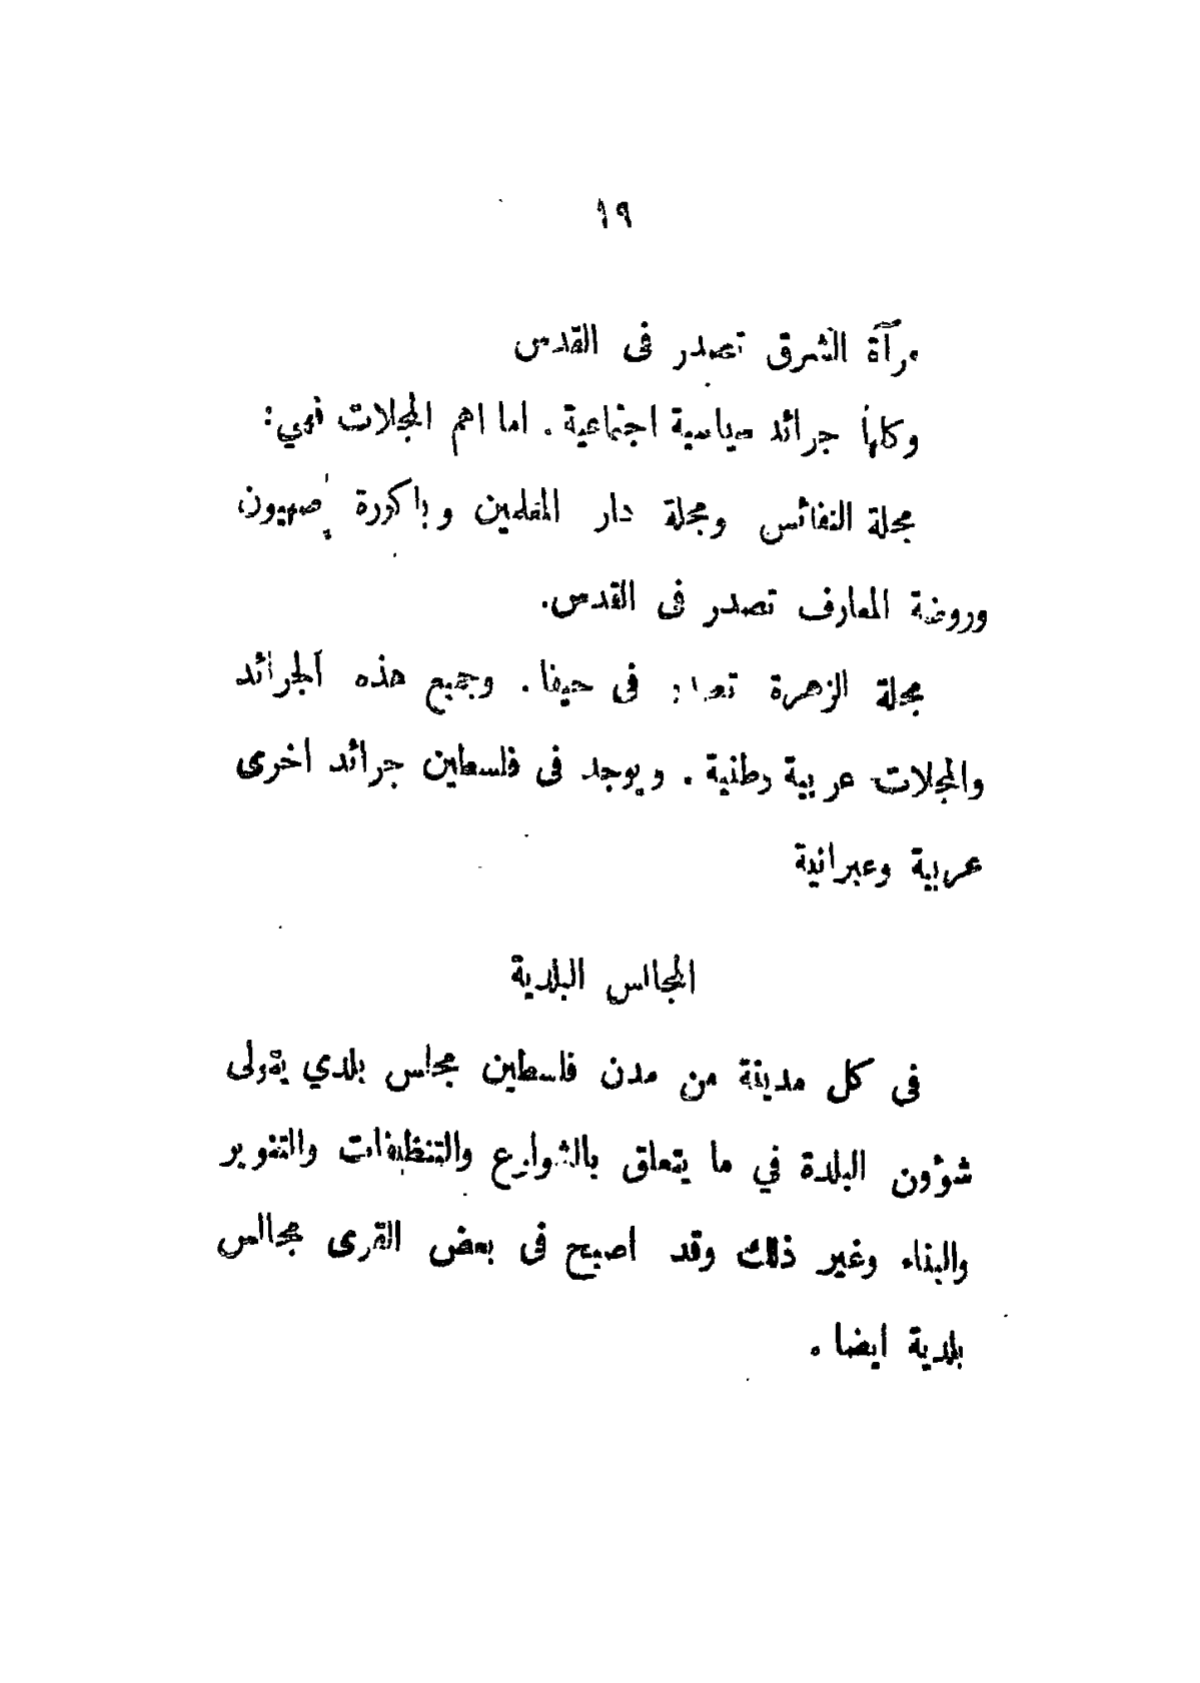 ١٩
مرآة الشرق تصدر فى القدس
وكلها جرائد سياسية اجتماعية . اما اهم المجلات فهي:
مجلة النفائس ومجلة دار المعلمين وباكورة صهيون
وروضة المعارف تصدر فى القدس.
مجلة الزهرة تصدر فى حيفا . وجميع هذه الجرائد
والمجلات عربية وطنية . ويوجد فى فلسطين جرائد اخرى
عربية وعبرانية
المجالس البلدية
فى كل مدينة من مدن فلسطين مجلس بلدي يتولى
شؤون البلدة في ما يتعلق بالشوارع والتنظيفات والتنوير
والبناء وغير ذلك وقد اصبح فى بعض القرى مجالس
بلدية ايضا .